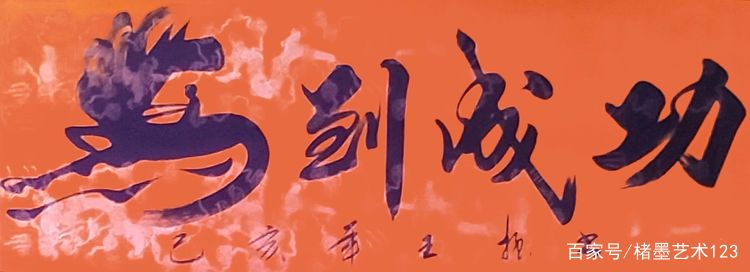 馬到成功
己亥年王振
百家号/楮墨艺术123